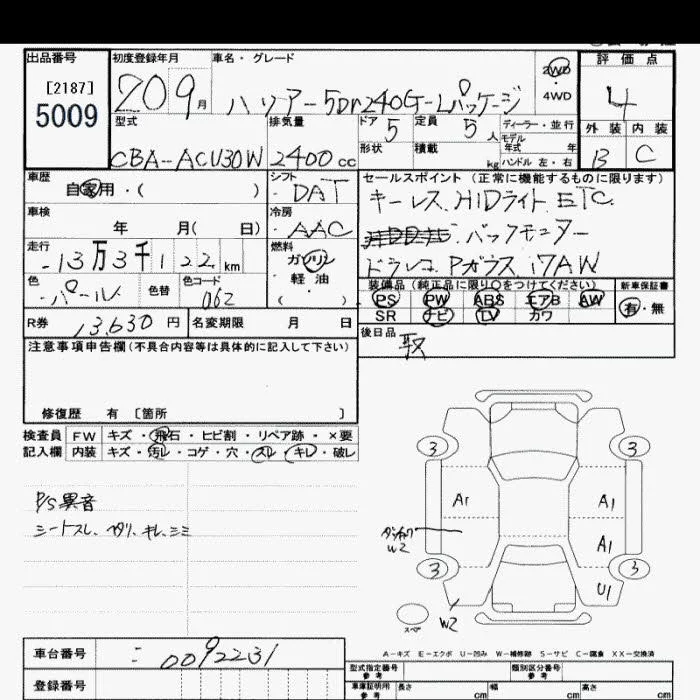 出品番号 初度登録年月 車名・グレード 2WD 4WD 評価点
[2187]
5009
20 9月 ハリアー 5Dr 240G-Lパッケージ 4
型式 排気量 ドア 5 定員 5人 ディーラー・並行 外装 内装
CBA-ACU30W 2400cc 形状 積載 kg モデル年式 年 B C
ハンドル 左・右
車歴 シフト セールスポイント (正常に機能するものに限ります)
自家用・( ) DAT キーレス. HIDライト ETC.
車検 冷房
年 月( 日) AAC バックモニター
走行 燃料
13万3千122km ガソリン ドラレコ Pガラス 17AW
色 色替 色コード 軽・油 装備品 (純正品に限り〇をつけてください) 新車保証書
パール 062 ( ) PS PW ABS エアB AW 有・無
R券 13,630円 名変期限 月 日 SR ナビ TV カワ
注意事項申告欄(不具合内容等は具体的に記入して下さい) 後日品
取
修復歴 有 [箇所 ]
検査員 FW キズ・飛石・ヒビ割・リペア跡・×要
記入欄 内装 キズ・汚レ・コゲ・穴・スレ・キレ・破レ
3 3
P/S異音
シートスレ、ヘタリ、キレ、シミ
A1 A1
W2 A1
3 3
U1
W2
スペア
A-キズ E-エクボ U-凹み W-補修跡 S-サビ C-腐食 XX-交換済
車台番号 0092231
登録番号
型式指定番号 参考 類別区分番号 参考
車庫証明用 参考 長さ cm 幅 cm 高さ cm